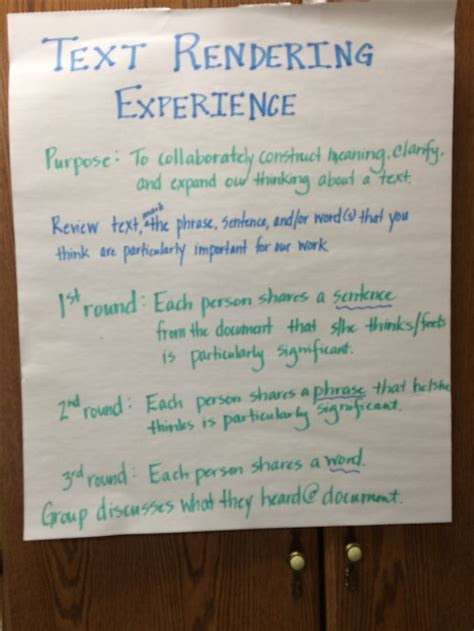 TEXT RENDERING
EXPERIENCE
Purpose: To collaborately construct meaning, clarify,
and expand our thinking about a text.
mark
Review text, the phrase, sentence, and/or word(s) that you
think are particularly important for our work
1st round: Each person shares a sentence
from the document that s/he thinks/feels
is particularly significant.
2nd round: Each person shares a phrase that he/she
thinks is particularly significant.
3rd round: Each person shares a word.
Group discusses what they heard @ document.